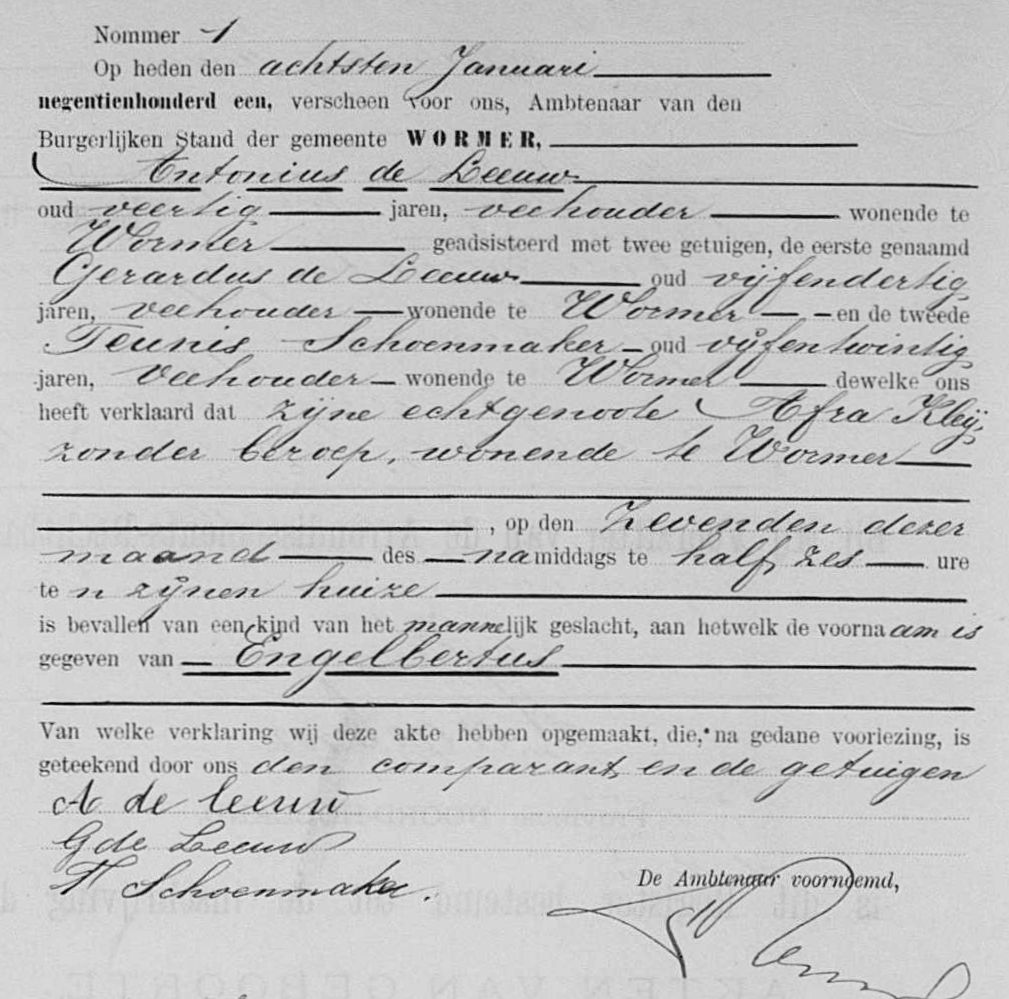 Nommer 1
Op heden den achtsten Januari
negentienhonderd een, verscheen voor ons, Ambtenaar van den
Burgerlijken Stand der gemeente WORMER,
Antonius de Leeuw
oud veertig jaren, veehouder wonende te
Wormer geadsisteerd met twee getuigen, de eerste genaamd
Gerardus de Leeuw oud vijfendertig
jaren, veehouder wonende te Wormer en de tweede
Teunis Schoenmaker oud vijfentwintig
jaren, veehouder wonende te Wormer dewelke ons
heeft verklaard dat zijne echtgenoote Afra Kleij,
zonder beroep, wonende te Wormer
, op den zevenden dezer
maand des namiddags te half zes ure
te n zijnen huize
is bevallen van een kind van het mannelijk geslacht, aan hetwelk de voornaam is
gegeven van Engelbertus
Van welke verklaring wij deze akte hebben opgemaakt, die, na gedane voorlezing, is
geteekend door ons den comparant en de getuigen
A de leeuw
G de Leeuw
T Schoenmaker.
De Ambtenaar voornoemd,